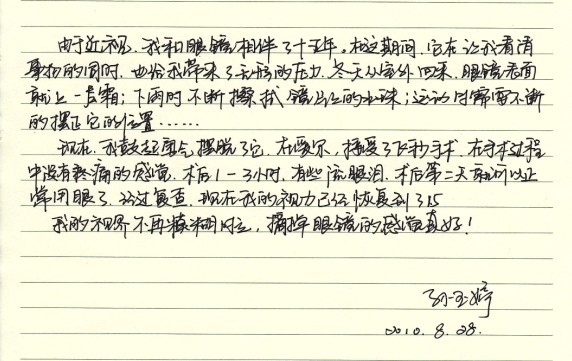 由于近视，我和眼镜相伴了十五年。在这期间，它在让我看清
事物的同时，也给我带来了无形的压力。冬天从室外回来，眼镜表面
就上一层霜；下雨时不断擦拭镜片上的水珠；运动时需要不断
的摆正它的位置……
现在，我鼓起勇气摆脱了它。在爱尔，接受了飞秒手术，在手术过程
中没有疼痛的感觉，术后1-3小时，有些流眼泪，术后第二天就可以正
常用眼了。经过复查，现在我的视力已经恢复到了1.5
我的视界不再模糊，摘掉眼镜的感觉真好！
孙玉婷
2010.8.28.